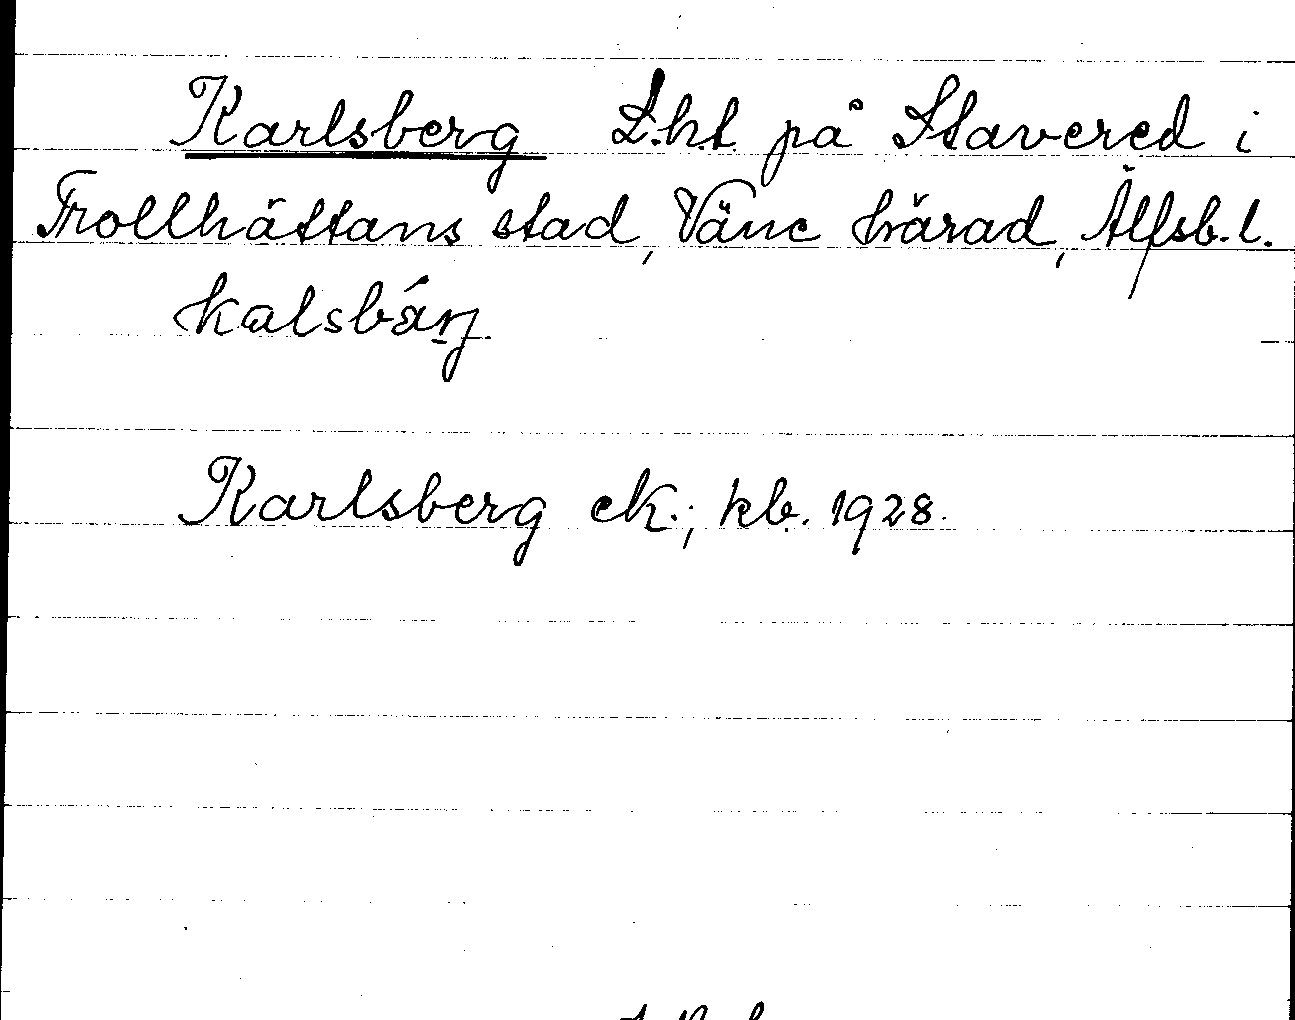 Karlsberg L.ht på Stavered i
Trollhättans stad, Väne härad, Älfsb. l.
kalsbárj.
Karlsberg ek.; kb. 1928.